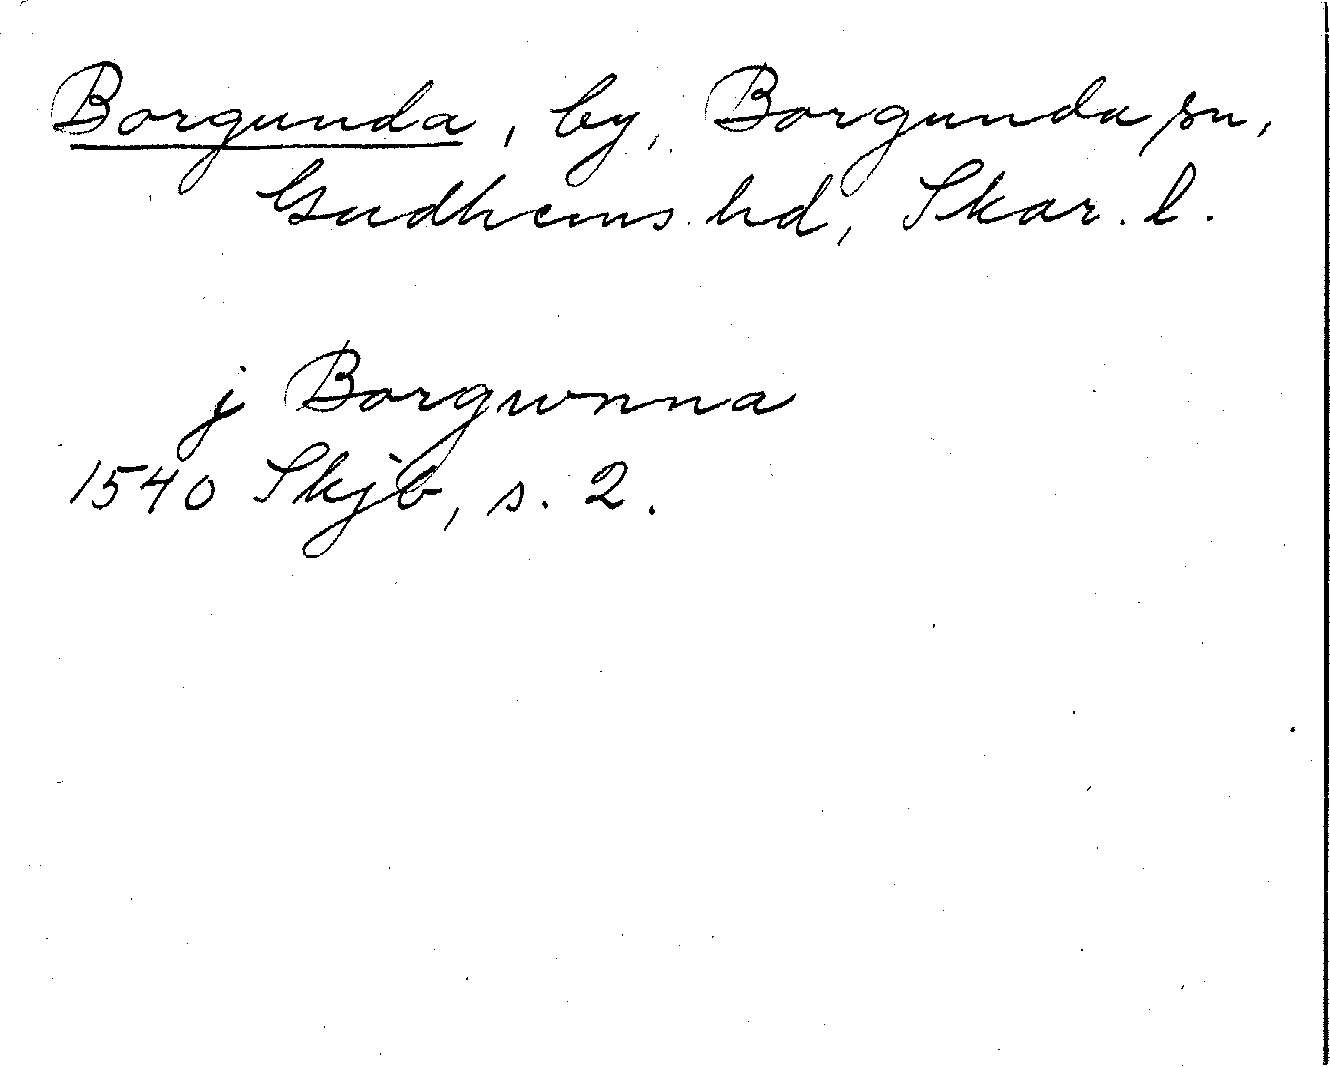 Borgunda, by, Borgunda sn,
Gudhems hd, Skar. l.
j Borgwnna
1540 Skjb, s. 2.